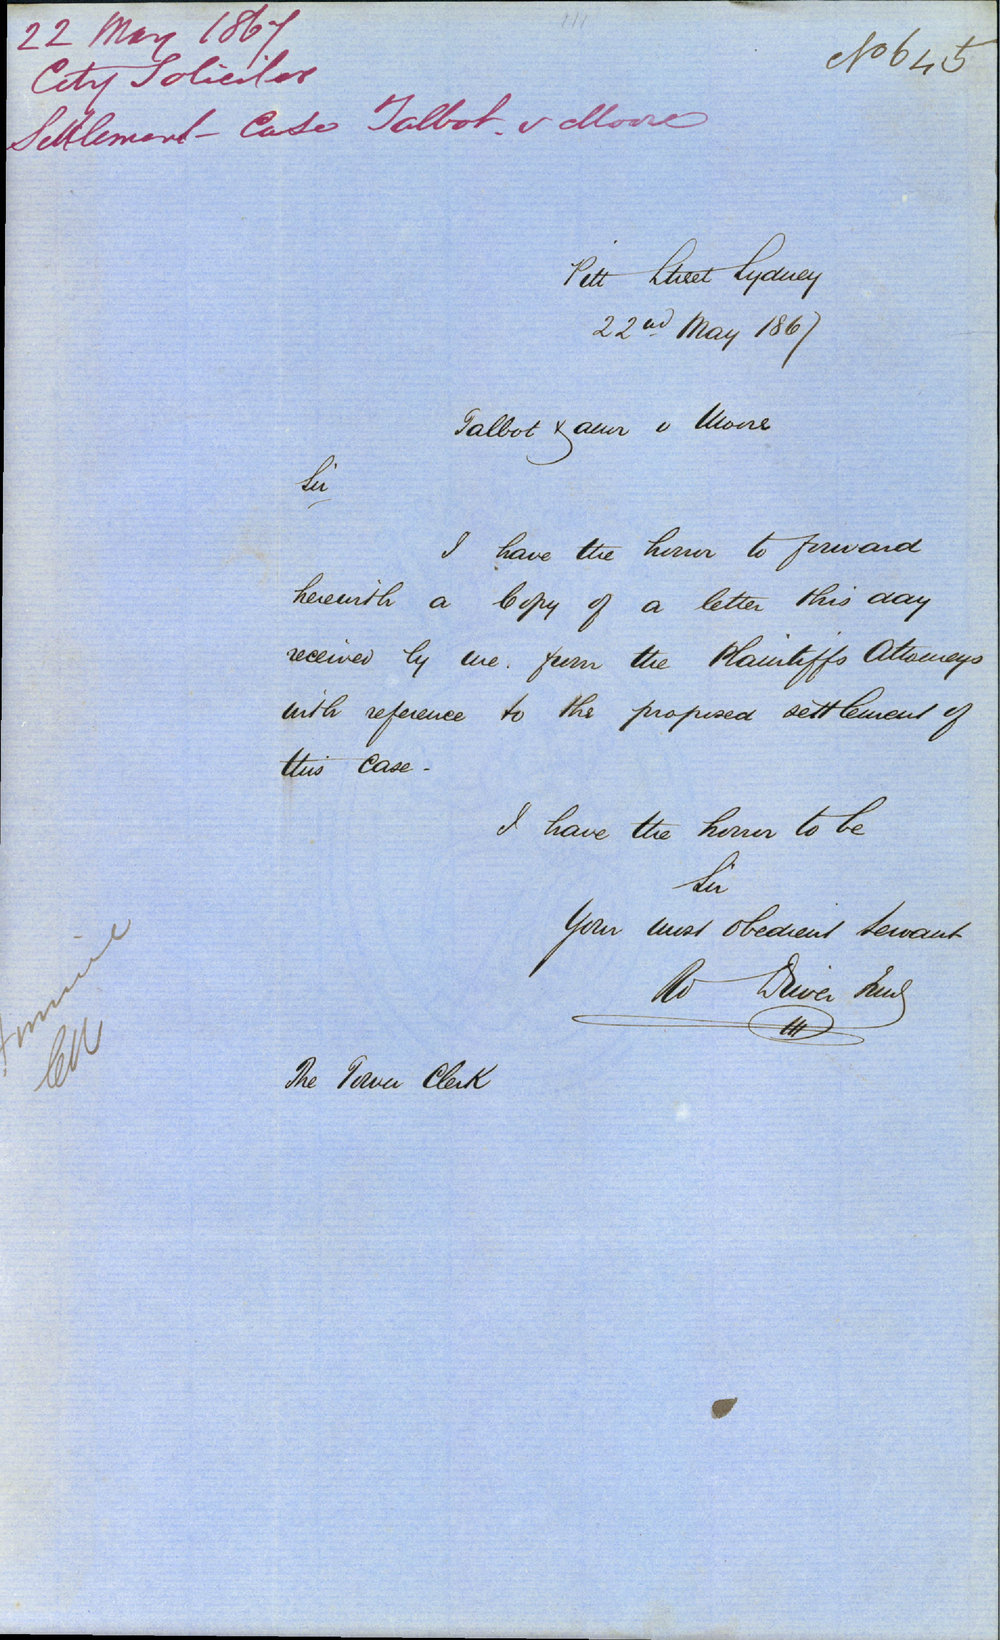 22 May 1867
City Solicitor
Settlement - Case Talbot v Moore
No 645
Pitt Street Sydney
22nd May 1867
Talbot & anor v Moore
Sir
I have the honor to forward
herewith a Copy of a letter this day
received by me from the Plaintiffs Attorneys
with reference to the proposed settlement of
this Case -
I have the honor to be
Sir
Your most obedient Servant
Rd Driver Junr
The Town Clerk